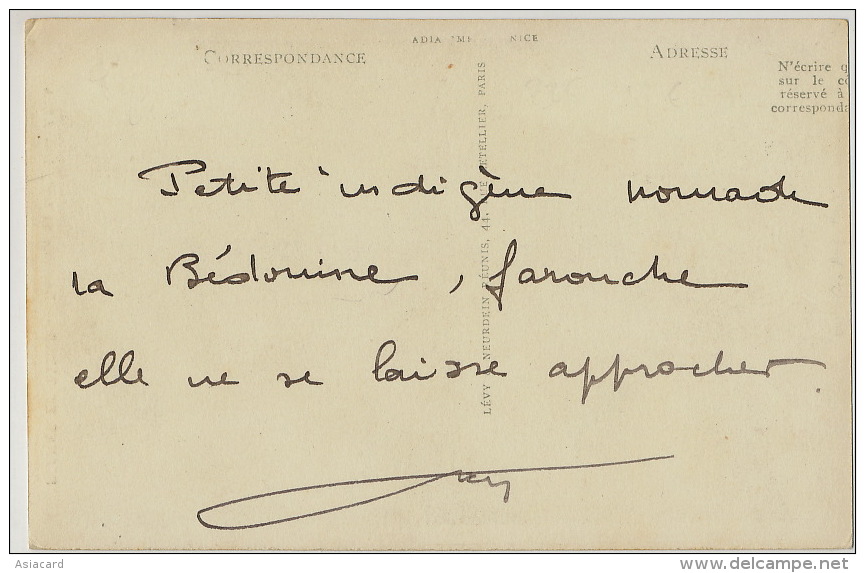 ADIA NICE
CORRESPONDANCE
ADRESSE
N'écrire
sur le
réservé à
correspond
LÉVY NEURDEIN RÉUNIS, 44, RUE LETELLIER, PARIS
Petite indigène nomade
la Bédouine, farouche
elle ne se laisse approcher.
Asiacard
delcampe.net